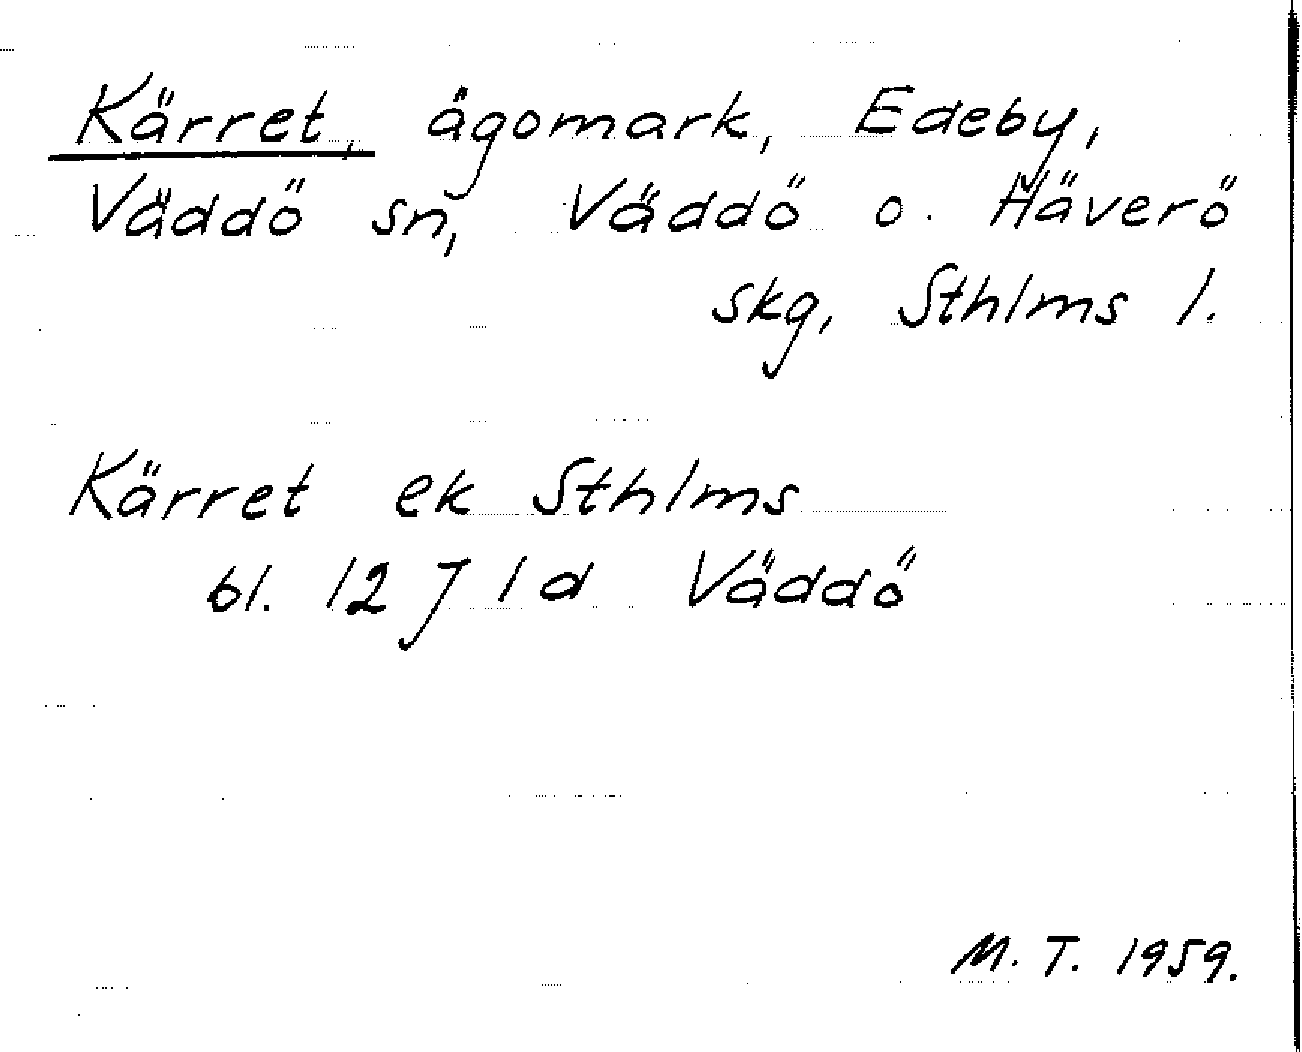 Kärret, ägomark, Edeby,
Väddö sn, Väddö o. Häverö
skg, Sthlms l.
Kärret ek Sthlms
bl. 12 J 1 d Väddö
M. T. 1959.